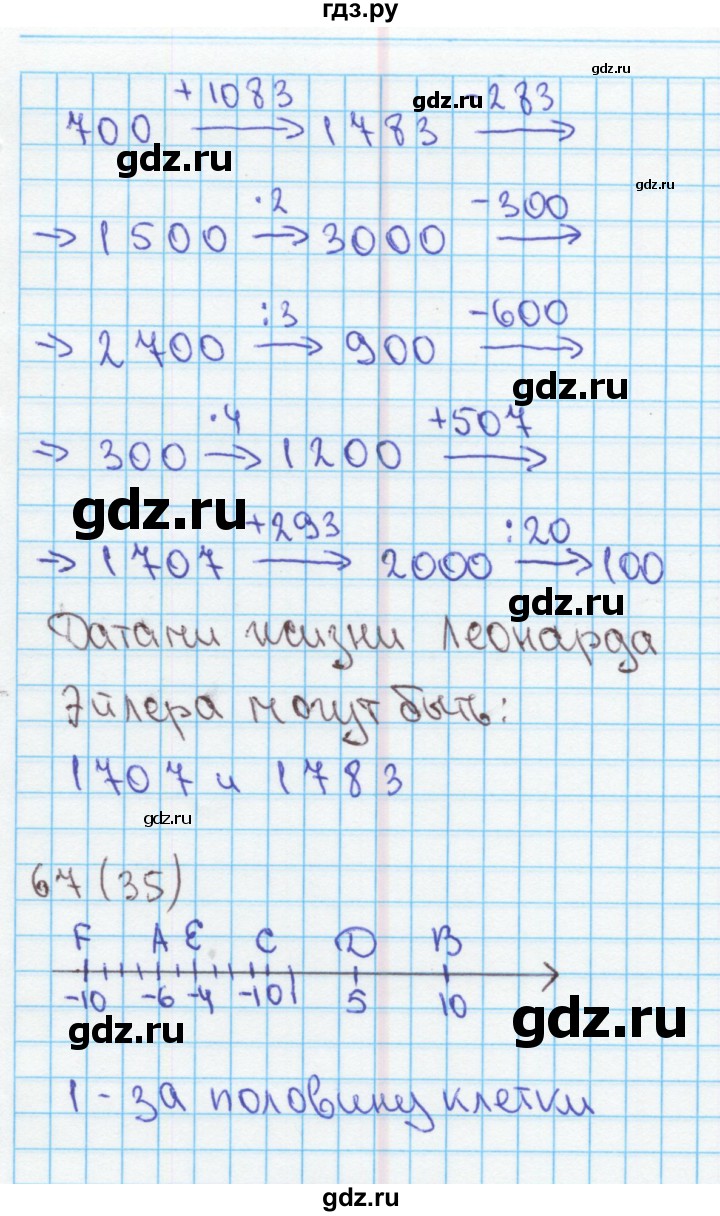 гдз.ру
gdz.ru
+1083 -283
700 → 1783 →
gdz.ru
gdz.ru
gdz.ru
·2 -300
→ 1500 → 3000 →
:3 -600
→ 2700 → 900 →
gdz.ru
·4 +507
→ 300 → 1200 →
gdz.ru
+293 :20
→ 1707 → 2000 → 100
gdz.ru
Датами жизни Леонарда
Эйлера могут быть:
1707 и 1783
gdz.ru
67 (35)
F A E C D B
-10 -6 -4 -1 0 1 5 10
gdz.ru
gdz.ru
1 - за половину клетки
gdz.ru